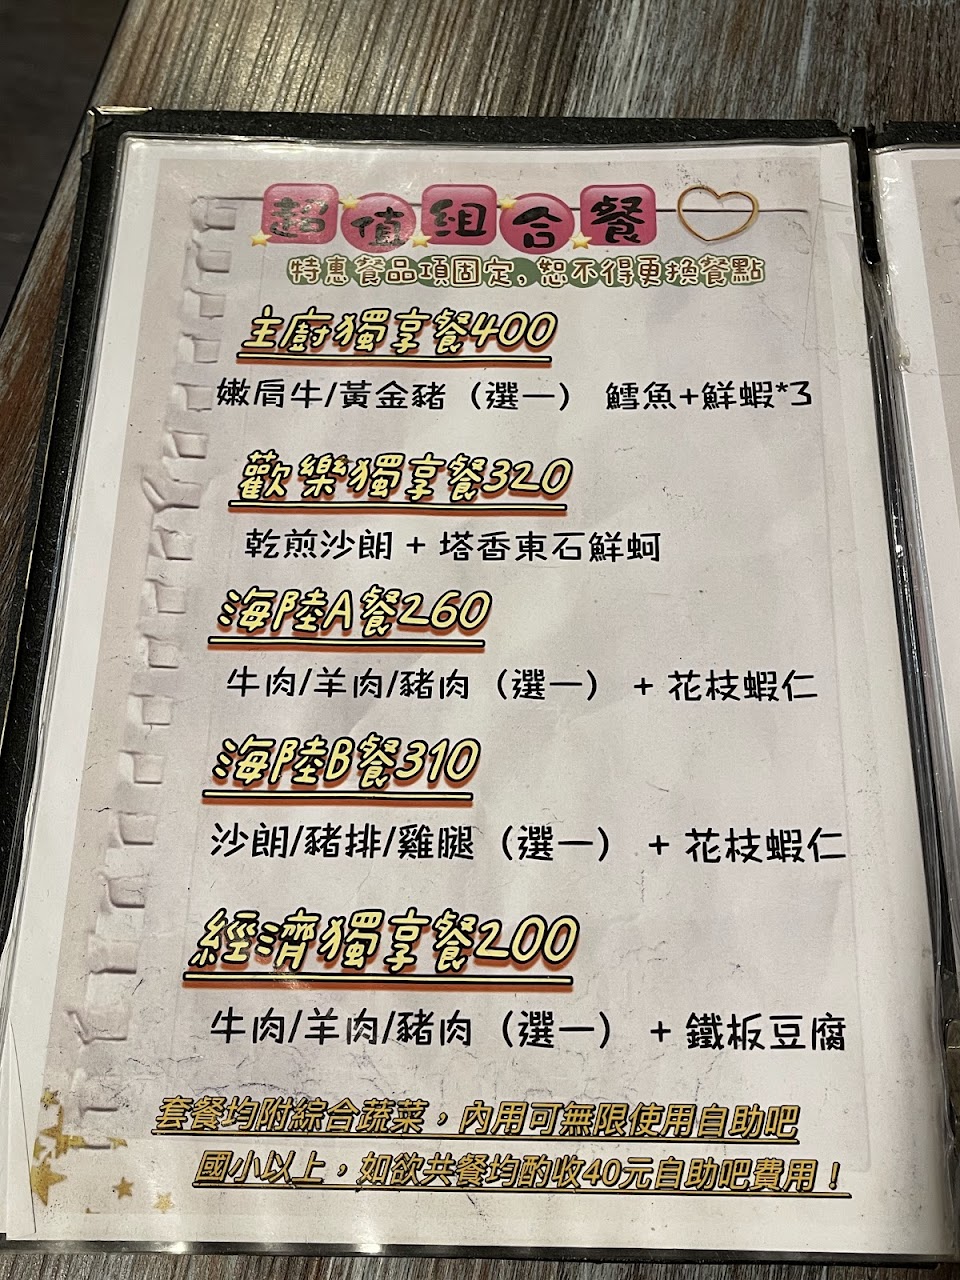 超值組合餐
特惠餐品項固定,恕不得更換餐點
主廚獨享餐400
嫩肩牛/黃金豬（選一） 鱈魚+鮮蝦*3
歡樂獨享餐320
乾煎沙朗 + 塔香東石鮮蚵
海陸A餐260
牛肉/羊肉/豬肉（選一） + 花枝蝦仁
海陸B餐310
沙朗/豬排/雞腿（選一） + 花枝蝦仁
經濟獨享餐200
牛肉/羊肉/豬肉（選一） + 鐵板豆腐
套餐均附綜合蔬菜，內用可無限使用自助吧
國小以上，如欲共餐均酌收40元自助吧費用！